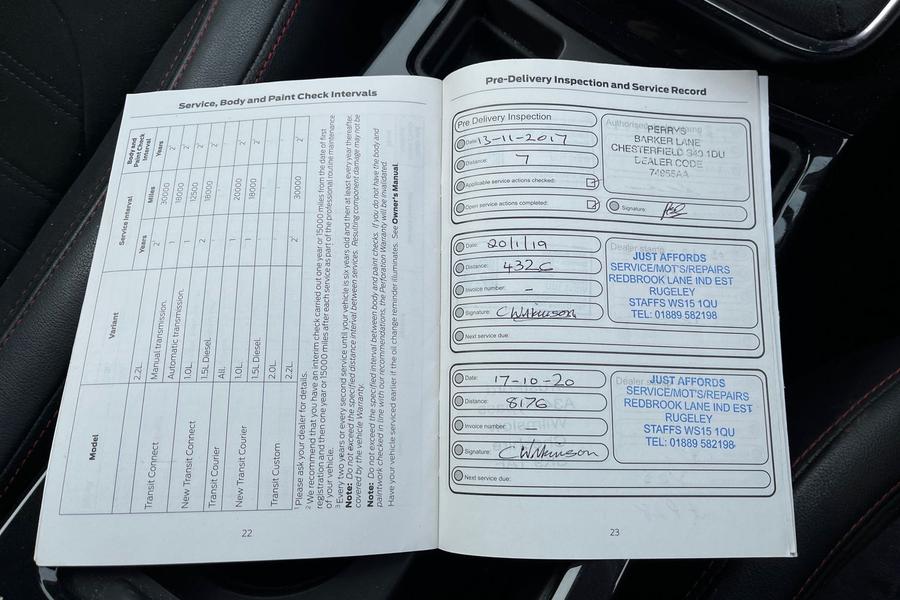 Service, Body and Paint Check Intervals
Model
Variant
Service Interval
Body and Paint Check Interval
Years
Miles
Years
Transit Connect
2.2L
Manual transmission.
Automatic transmission.
New Transit Connect
1.0L
1.5L Diesel.
Transit Courier
All.
New Transit Courier
1.0L
1.5L Diesel.
Transit Custom
2.0L
2.2L
Please ask your dealer for details.
We recommend that you have an interim check carried out one year or 15000 miles from the date of first
registration and then one year or 15000 miles after each service as part of the professional routine maintenance
of your vehicle.
Every two years or every second service until your vehicle is six years old and then at least every year thereafter.
Note: Do not exceed the specified distance interval between services. Resulting component damage may not be
covered by the vehicle Warranty.
Note: Do not exceed the specified interval between body and paint checks. If you do not have the body and
paintwork checked in line with our recommendations, the Perforation Warranty will be invalidated.
Have your vehicle serviced earlier if the oil change reminder illuminates. See Owner's Manual.
22
Pre-Delivery Inspection and Service Record
Pre Delivery Inspection
Date: 13-11-2017
Distance: 7
Applicable service actions checked:
Open service actions completed:
PERRYS
BARKER LANE
CHESTERFIELD S40 1DU
DEALER CODE
Signature:
Date: 20/1/19
Distance:
Invoice number: -
Signature: C Wilkinson
Next service due:
Dealer stamp
JUST AFFORDS
SERVICE/MOT'S/REPAIRS
REDBROOK LANE IND EST
RUGELEY
STAFFS WS15 1QU
TEL: 01889 582198
Date: 17-10-20
Distance: 8176
Invoice number: -
Signature: C Wilkinson
Next service due:
Dealer s
JUST AFFORDS
SERVICE/MOT'S/REPAIRS
REDBROOK LANE IND EST
RUGELEY
STAFFS WS15 1QU
TEL: 01889 582198
23